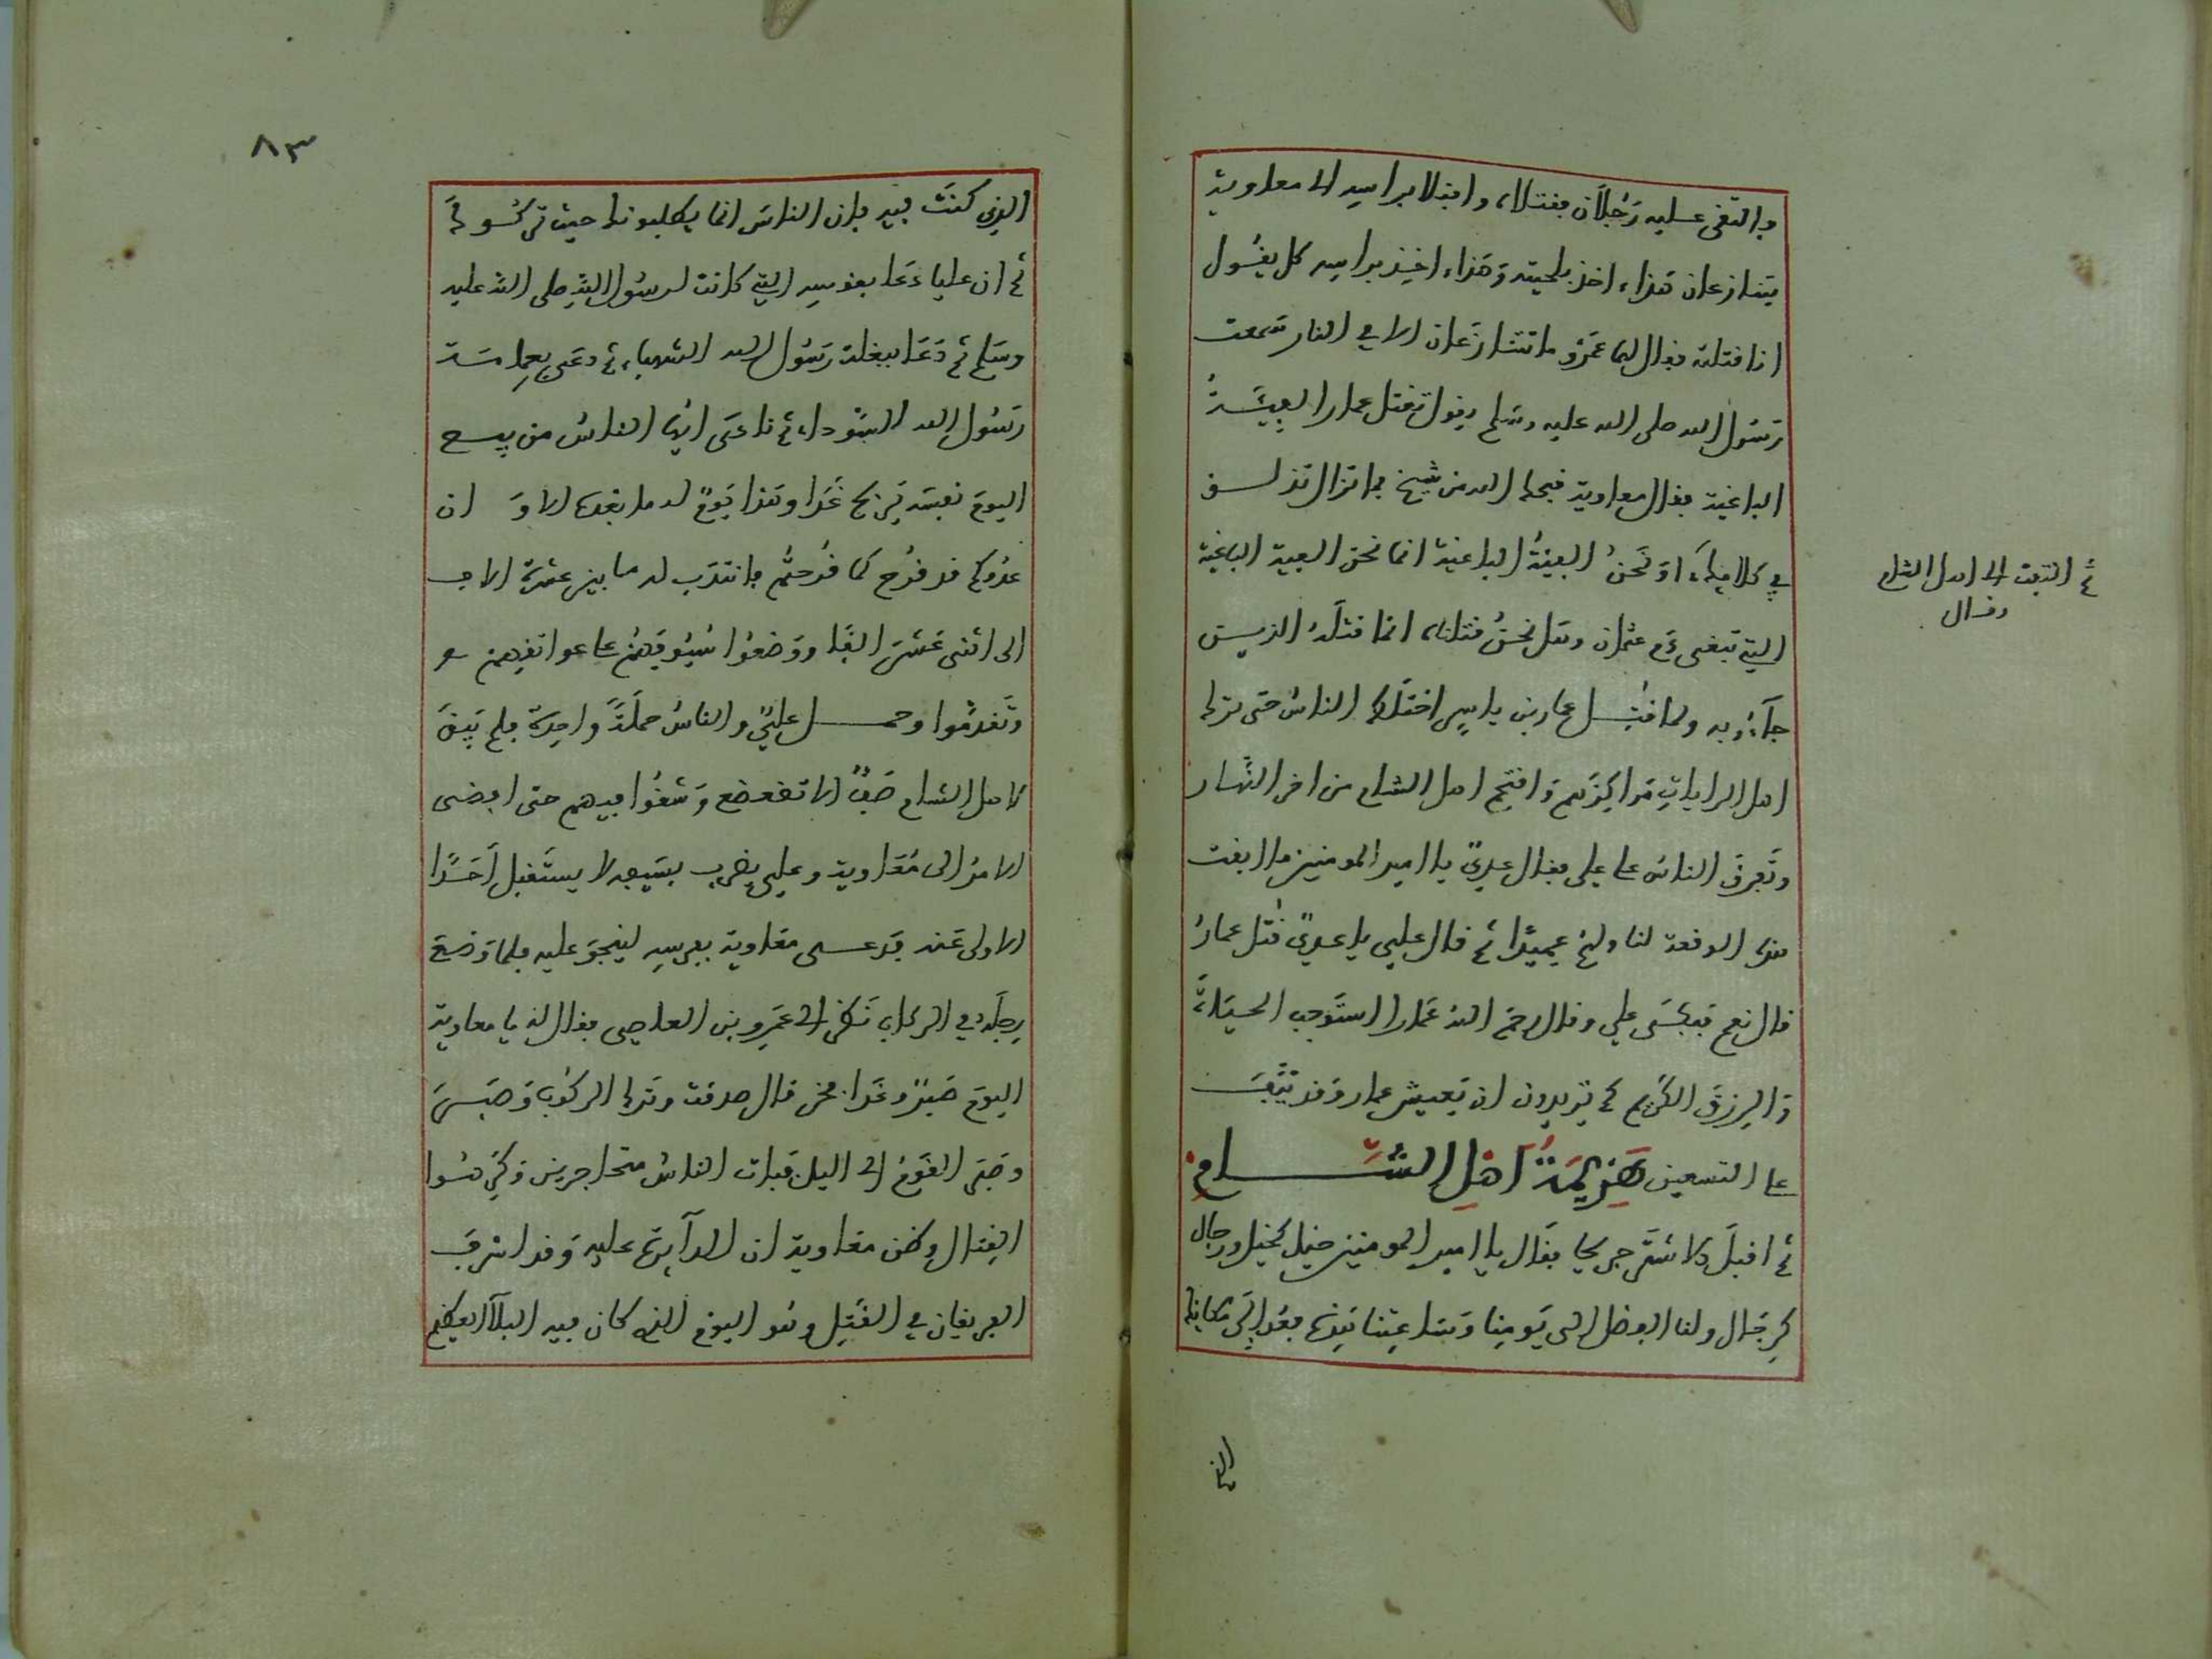 والتقى عليه رَجُلَان فقتلاه واقبلا براسِهِ الى معاوية
يتنازعان هَذا اخذ بلحيته وَهَذا اخِذ براسِه كل يقُول
انا قتلته فقال لهما عَمْرُو ما تتنازعَان الا في النار سَمعت
رَسُول الله صلى الله عليه وسَلم يقول تقتل عمارا الفِيَّةُ
الباغية فقال معاوية قبحك الله من شيخ فما تزال تزلق
في كلامِك اوَنَحنُ الفيَّةُ الباغية انما نحن الفية الباغية
التي تبغي دَم عثمان وهَل نحنُ قتلناه انما قتلَهُ الذين
جآءُو به ولما قتِل عمار بن ياسِرٍ اختلَط الناسُ حتى ترك
اهل الراياتِ مَراكِزَهم وَاقتحم اهل الشام من اخر النَّهار
وتَفرقَ الناسُ عن علي فقال عدِيٌّ يا امير المومنين ما ابقت
هذه الوقعة لنا ولهم عميدًا ثم قال علي يا عديٌّ قُتل عمارُ
قال نعم فبكَى علي وقال رحم الله عَمارا استَوجب الحيَاةَ
وَالرزقَ الكريم كم تريدون ان يَعيش عمار وَقد نيَّفَ
على التسعين هَزِيمَةُ اَهْلِ الشَّامِ
ثم اقبَل الاشتَر جريحا فقال يا امير المومنين خيل كخيل ورجال
كرِجَال ولنا الفضل الى يَومِنا وَسَاعِتنا هَذِه فعُد الَى مكانِك
ثم التفت الى اهل الشام
وقال
الذي
٨٣
الذي كنتَ فيهِ فإن الناسَ انما يطلبونك حيث تركُوكَ
ثم ان عليا دَعَا بفرسِهِ التي كانت لرسُول اللهِ صلى الله عليه
وسَلم ثم دَعَا ببغلة رَسُول الله الشهباء ثم دعَى بعِمامَة
رَسُول الله السَّوداء ثم نادَى ايها الناسُ من يبع
اليومَ نفسَه يَربح غَدا وهَذا يَومٌ له ما بعدَه الا وَ ان
عدُوكم قد قُرح كما قُرحتُم فانتدَب له ما بين عشرة الاف
الى اثنى عَشَر الفًا ووَضعُوا سُيُوفهُم على عواتقِهم
وتَقدمُوا وحمل عليٌّ والناسُ حملَةً واحِدة فلم يَبقَ
لاهل الشام صَفٌّ الا تضعضع وَشقُوا فيهم حتى افضى
الامرُ الى مُعَاوية وعليٌّ يضرب بسَيفه لا يستَقبل احَدًا
الا ولى عَنه فدعى معَاوية بفرسِه لينجوَ عليه فلما وَضع
رجلَه في الركاب نَظر الى عَمرِو بن العاصِى فقال لهُ يا معاوية
اليومَ صَبْرٌ وغَدا فخر قال صدقت وتَرك الركُوبَ وَصَبَر
وصَبر القَومُ الى الليل فَبات الناسُ متحاجزين وَكرِهُوا
القِتال وظن معَاوية ان الدآيرةَ عليهِ وَقد اشرفَ
الفريقان في القتِل وَهُو اليوم الذي كان فيه البلآ العظيم